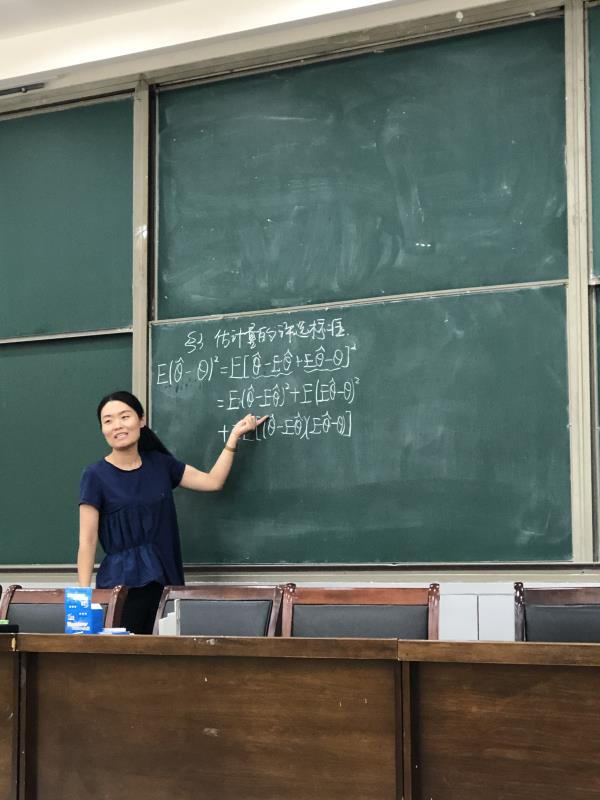 §3 估计量的评选标准
E(θ̂-θ)²=E[θ̂-Eθ̂+Eθ̂-θ]²
=E(θ̂-Eθ̂)²+E(Eθ̂-θ)²
+ E[(θ̂-Eθ̂)(Eθ̂-θ)]